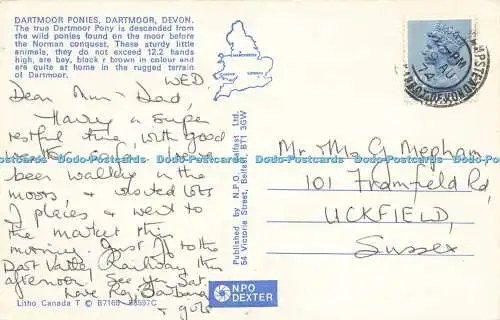 DARTMOOR PONIES, DARTMOOR, DEVON.
The true Dartmoor Pony is descended from
the wild ponies found on the moor before
the Norman conquest. These sturdy little
animals, they do not exceed 12.2 hands
high, are bay, black or brown in colour and
are quite at home in the rugged terrain
of Dartmoor.
WED.
Dear Mum & Dad,
Having a super
restful time, with good
weather so far. Have
been walking in the
moors & visited lots
of places & went to
the market this
morning. Just off to the
Dart Valley Railway this
afternoon. See you Sat.
Love Reg, Barbara
& girls
Litho Canada T © B7165
Published by N.P.O. Belfast Ltd.,
54 Victoria Street, Belfast, BT1 3GW
NPO
DEXTER
Mr & Mrs G Mepham,
101 Framfield Rd,
UCKFIELD,
Sussex
www.dodo-postcards.com